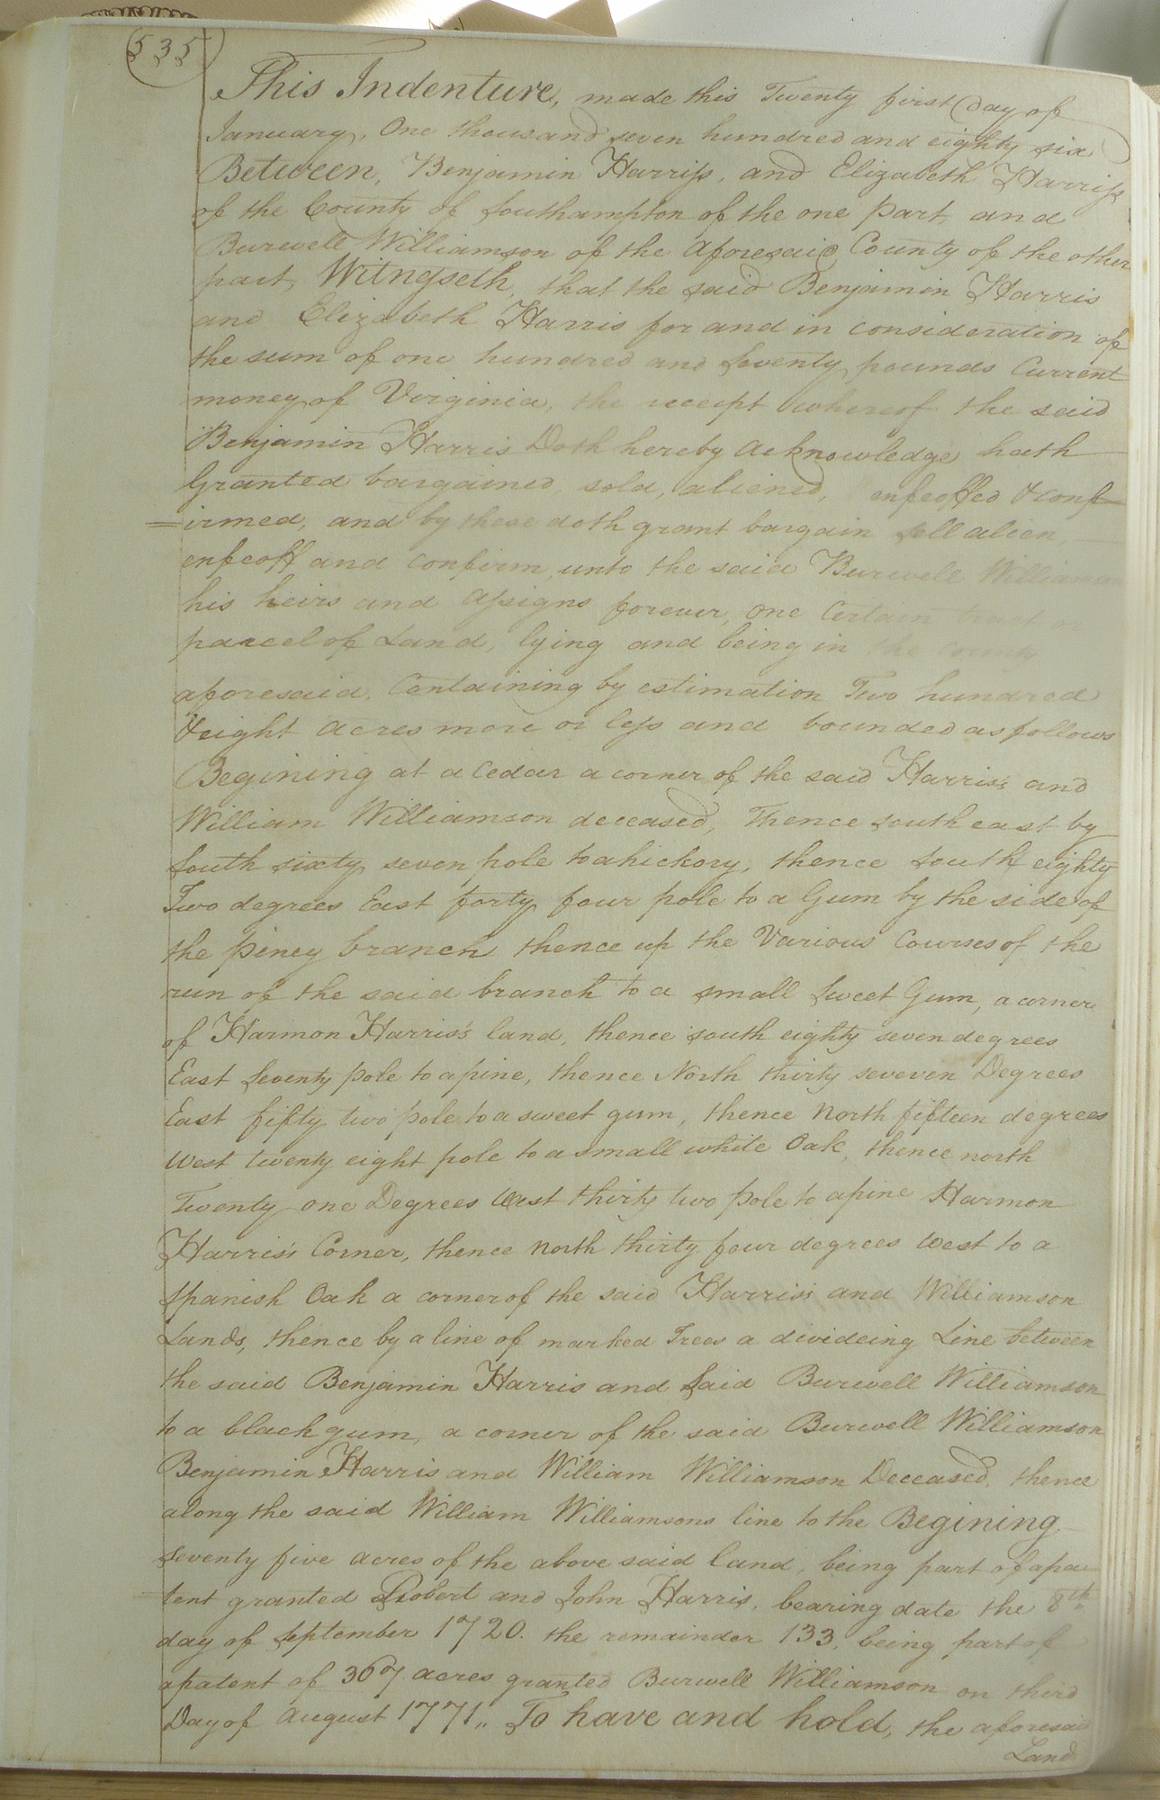 535
This Indenture, made this Twenty first Day of
January, One thousand seven hundred and eighty six
Between, Benjamin Harriss, and Elizabeth Harriss
of the County of Southampton of the one part, and
Burwell Williamson of the aforesaid County of the other
part, Witnesseth, that the said Benjamin Harris
and Elizabeth Harris for and in consideration of
the sum of one hundred and Seventy pounds Current
money of Virginia, the receipt whereof the said
Benjamin Harris Doth hereby acknowledge hath
Granted bargained sold, aliened, enfeoffed & conf
=irmed, and by these doth grant bargain Sell alien
enfeoff and confirm, unto the said Burwell Williamson
his heirs and assigns forever, one Certain tract or
parcel of Land, lying and being in the County
aforesaid. Containing by estimation Two hundred
& eight acres more or less and bounded as follows
Begining at a Cedar a corner of the said Harris's and
William Williamson deceased, Thence South east by
South sixty seven pole to a hickory, thence South eighty
Two degrees East forty four pole to a Gum by the side of
the piney branch thence up the Various Courses of the
run of the said branch to a small Sweet Gum, a corner
of Harmon Harris's land, thence south eighty seven degrees
East Seventy pole to a pine, thence North thirty seveven Degrees
East fifty two pole to a sweet gum, thence North fifteen degrees
West twenty eight pole to a small white Oak, thence north
Twenty one Degrees West thirty two pole to a pine Harmon
Harris's Corner, thence North thirty four degrees West to a
Spanish Oak a corner of the said Harris's and Williamson
Lands, thence by a line of marked Trees a divideing Line between
the said Benjamin Harris and Said Burwell Williamson
to a black gum, a corner of the said Burwell Williamson
Benjamin Harris and William Williamson Deceased, thence
along the said William Williamsons line to the Begining
Seventy five acres of the above said land, being part of a pa
=tent granted Robert and John Harris, bearing date the 8th
day of September 1720. the remainder 133, being part of
a patent of 367 acres granted Burwell Williamson on third
Day of August 1771,, To have and hold, the aforesaid
Land